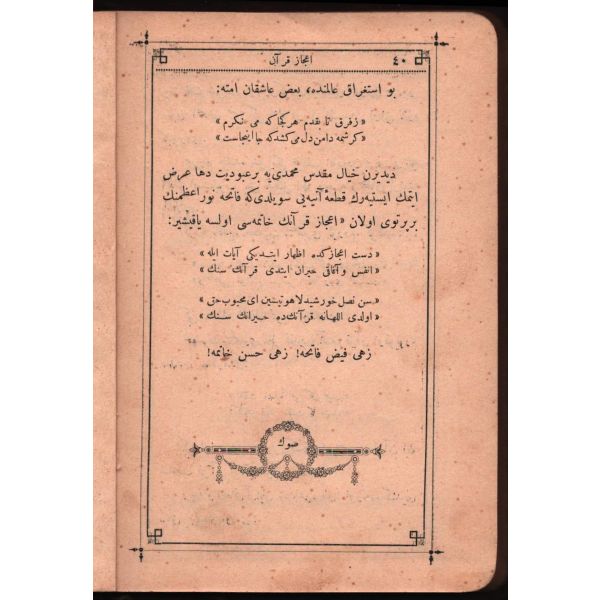 ٤٠ اعجاز قرآن
بو استغراق عالمنده، بعض عاشقان امته:
« زفرق تا بقدم هر کجا که می نکرم »
« کرشمه دامن دل می کشد که جا اینجاست »
دیدیرن خیال مقدس محمدی‌یه بر عبودیت دها عرض
ایتمك ایستیه‌رك قطعهٔ آتیه‌یی سویلدی که فاتحه نور اعظمنك
بر پرتوی اولان « اعجاز قرآنك خاتمه‌سی اولسه یاقیشیر:
« دست اعجازکده اظهار ایتدیکی آیات ایله »
« انفس و آفاقی حیران ایتدی قرآنك سنك »
« سن نصل خورشید لاهوتیسین ای محبوب حق »
« اولدی اللهانه قرآنك‌ده حیرانك سنك »
زهی فیض فاتحه! زهی حسن خاتمه!
صوك